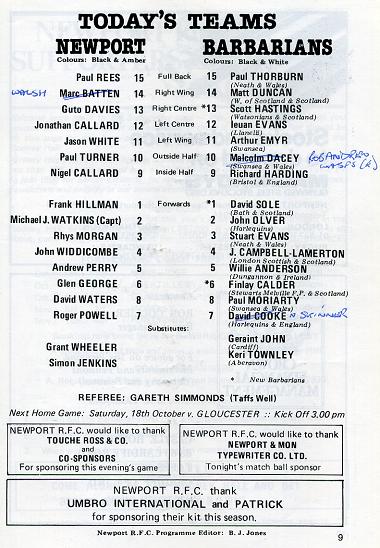 TODAY'S TEAMS
NEWPORT BARBARIANS
Colours: Black & Amber Colours: Black & White
Paul REES 15 Full Back 15 Paul THORBURN
(Neath & Wales)
WALSH Marc BATTEN 14 Right Wing 14 Matt DUNCAN
(W. of Scotland & Scotland)
Guto DAVIES 13 Right Centre *13 Scott HASTINGS
(Watsonians & Scotland)
Jonathan CALLARD 12 Left Centre 12 Ieuan EVANS
(Llanelli)
Jason WHITE 11 Left Wing 11 Arthur EMYR
(Swansea)
Paul TURNER 10 Outside Half 10 Malcolm DACEY ROB ANDREW
(Swansea & Wales) WASPS (R)
Nigel CALLARD 9 Inside Half 9 Richard HARDING
(Bristol & England)
Frank HILLMAN 1 Forwards *1 David SOLE
(Bath & Scotland)
Michael J. WATKINS (Capt) 2 2 John OLVER
(Harlequins)
Rhys MORGAN 3 3 Stuart EVANS
(Neath & Wales)
John WIDDICOMBE 4 4 J. CAMPBELL-LAMERTON
(London Scottish & Scotland)
Andrew PERRY 5 5 Willie ANDERSON
(Dungannon & Ireland)
Glen GEORGE 6 *6 Finlay CALDER
(Stewarts Melville F.P. & Scotland)
David WATERS 8 8 Paul MORIARTY
(Swansea & Wales)
Roger POWELL 7 7 David COOKE M SKINNER
(Harlequins & England)
Substitutes:
Grant WHEELER Geraint JOHN
(Cardiff)
Simon JENKINS Keri TOWNLEY
(Aberavon)
* New Barbarians
REFEREE: GARETH SIMMONDS (Taffs Well)
Next Home Game: Saturday, 18th October v. GLOUCESTER :: Kick Off 3.00 pm
NEWPORT R.F.C. would like to thank
TOUCHE ROSS & CO.
and
CO-SPONSORS
For sponsoring this evening's game
NEWPORT R.F.C. would like to thank
NEWPORT & MON
TYPEWRITER CO. LTD.
Tonight's match ball sponsor
NEWPORT R.F.C. thank
UMBRO INTERNATIONAL and PATRICK
for sponsoring their kit this season.
Newport R.F.C. Programme Editor: B. J. Jones
9